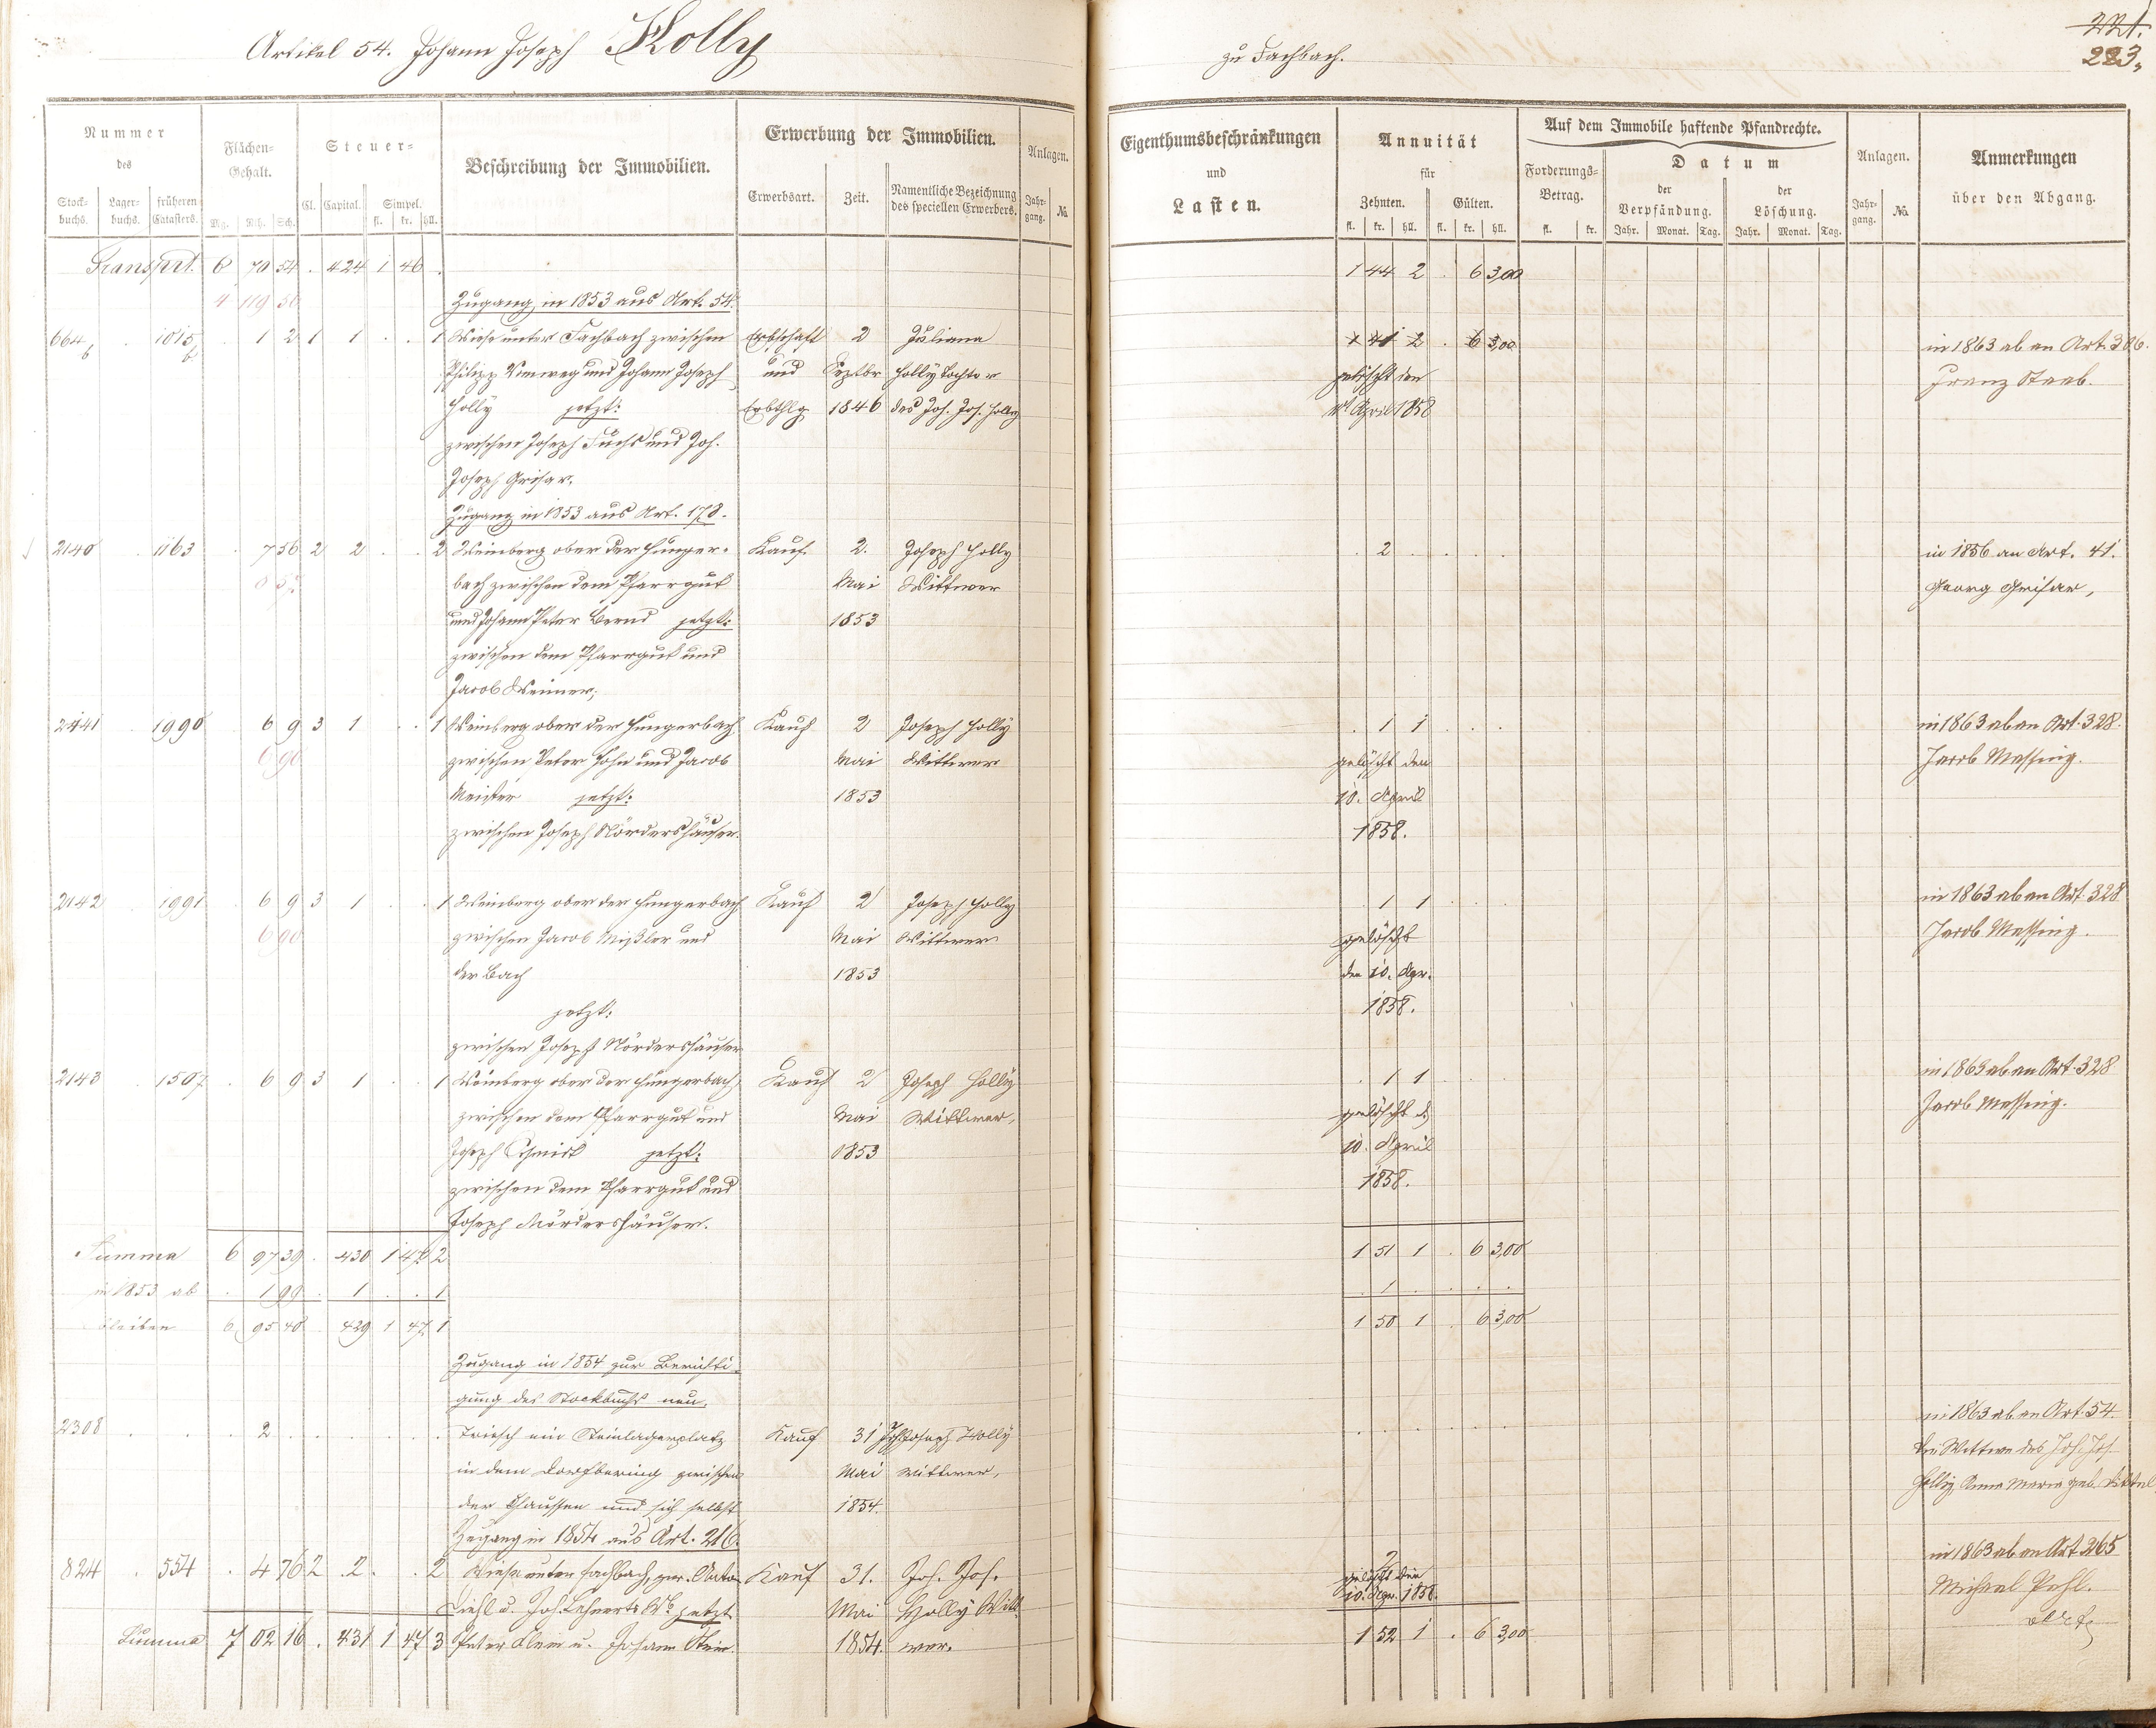 Artikel 54. Johann Joseph Holly
zu Fachbach.
221.
223.
Nummer
des
Stock-
buchs.
Lager-
buchs.
früheren
Catasters.
Flächen-
Gehalt.
Mg. Rth. Sch.
Steuer-
Cl. Capital. Simpel.
fl. kr. hll.
Beschreibung der Immobilien.
Erwerbung der Immobilien.
Erwerbsart. Zeit. Namentliche Bezeichnung
des speciellen Erwerbers.
Anlagen.
Jahr-
gang. No.
Eigenthumsbeschränkungen
und
Lasten.
Annuität
für
Zehnten. Gülten.
fl. kr. hll. fl. kr. hll.
Auf dem Immobile haftende Pfandrechte.
Forderungs-
Betrag.
fl. kr.
Datum
der
Verpfändung.
Jahr. Monat. Tag.
der
Löschung.
Jahr. Monat. Tag.
Anlagen.
Jahr-
gang. No.
Anmerkungen
über den Abgang.
Transport. 6 70 54 . 424 1 46 . 1 44 2 . 6 3,00
4 119 Zugang in 1853 aus Art. 54.
664 b . 1015 b . 1 2 1 1 . . 1 Wiese unter Fachbach zwischen Erbschaft 2 Juliana 2 . 6 3,00 in 1863 ab an Art. 386.
Philipp und Johann Joseph und Septbr Holly Tochter gelöscht den Franz Staab.
Holly jetzt: Erbthlg 1846 des Joh. Jos. Holly April 1858
zwischen Joseph Fuchs und Joh.
Joseph Grisar.
Zugang in 1853 aus Art. 178.
2140 . 1163 . 7 56 2 2 . . 2 Weinberg ober der Hunger- Kauf 2. Joseph Holly . 2 . in 1856 an Art. 41.
bach zwischen dem Pfarrgut Mai Wittwer Georg Grisar,
und Johann Peter Bernd jetzt: 1853
zwischen dem Pfarrgut und
Jacob Weimer;
2141 . 1990 . 6 9 3 1 . . 1 Weinberg ober der Hungerbach Kauf 2 Joseph Holly . 1 1 . in 1863 ab an Art. 328.
6 90 zwischen Peter Hohn und Jacob Mai Wittwer gelöscht den Jacob Messing.
Meister jetzt: 1853 10. April
zwischen Joseph Nördershäuser. 1858.
2142 . 1991 . 6 9 3 1 . . 1 Weinberg ober der Hungerbach Kauf 2 Joseph Holly . 1 1 . in 1863 ab an Art. 328
6 90 zwischen Jacob Mißler und Mai Wittwer gelöscht Jacob Messing.
der Bach 1853 den 10. Apr.
jetzt: 1858.
zwischen Joseph Nördershäuser
2143 . 1507 . 6 9 3 1 . . 1 Weinberg ober der Hungerbach Kauf 2 Joseph Holly . 1 1 . in 1863 ab an Art. 328
zwischen dem Pfarrgut und Mai Wittwer, gelöscht d. Jacob Messing.
Joseph Schmidt jetzt: 1853 10. April
zwischen dem Pfarrgut und 1858.
Joseph Nördershäuser.
Summa 6 97 39 . 430 1 47 2 1 51 1 . 6 3,00
in 1853 ab . 1 99 . 1 . . 1 . 1 . .
bleiben 6 95 40 . 429 1 47 1 1 50 1 . 6 3,00
Zugang in 1854 zur Berichti-
gung des Stockbuchs neu.
2308 . . . 2 . Triesch ein Steinlagerplatz Kauf 31 Joh. Joseph Holly . in 1863 ab an Art. 54.
in dem Dorfbering zwischen Mai Wittwer, die Wittwe des Joh. Jos.
der Chaussee und sich selbst 1854. Holly, Anna Maria geb.
Zugang in 1854 aus Art. 216.
824 . 554 . 4 76 2 2 . . 2 Wiese unter Fachbach, zw. Anton Kauf 31. Joh. Jos. 2 in 1863 ab an Art 265
Diehl u. Joh. Lehnerts Wb. jetzt Mai Holly Witt- gelöscht den 10. Apr. 1858. Michael Pehl.
Summa 7 02 16 . 431 1 47 3 Peter Klein u. Johann Klein. 1854. wer. 1 52 1 . 6 3,00